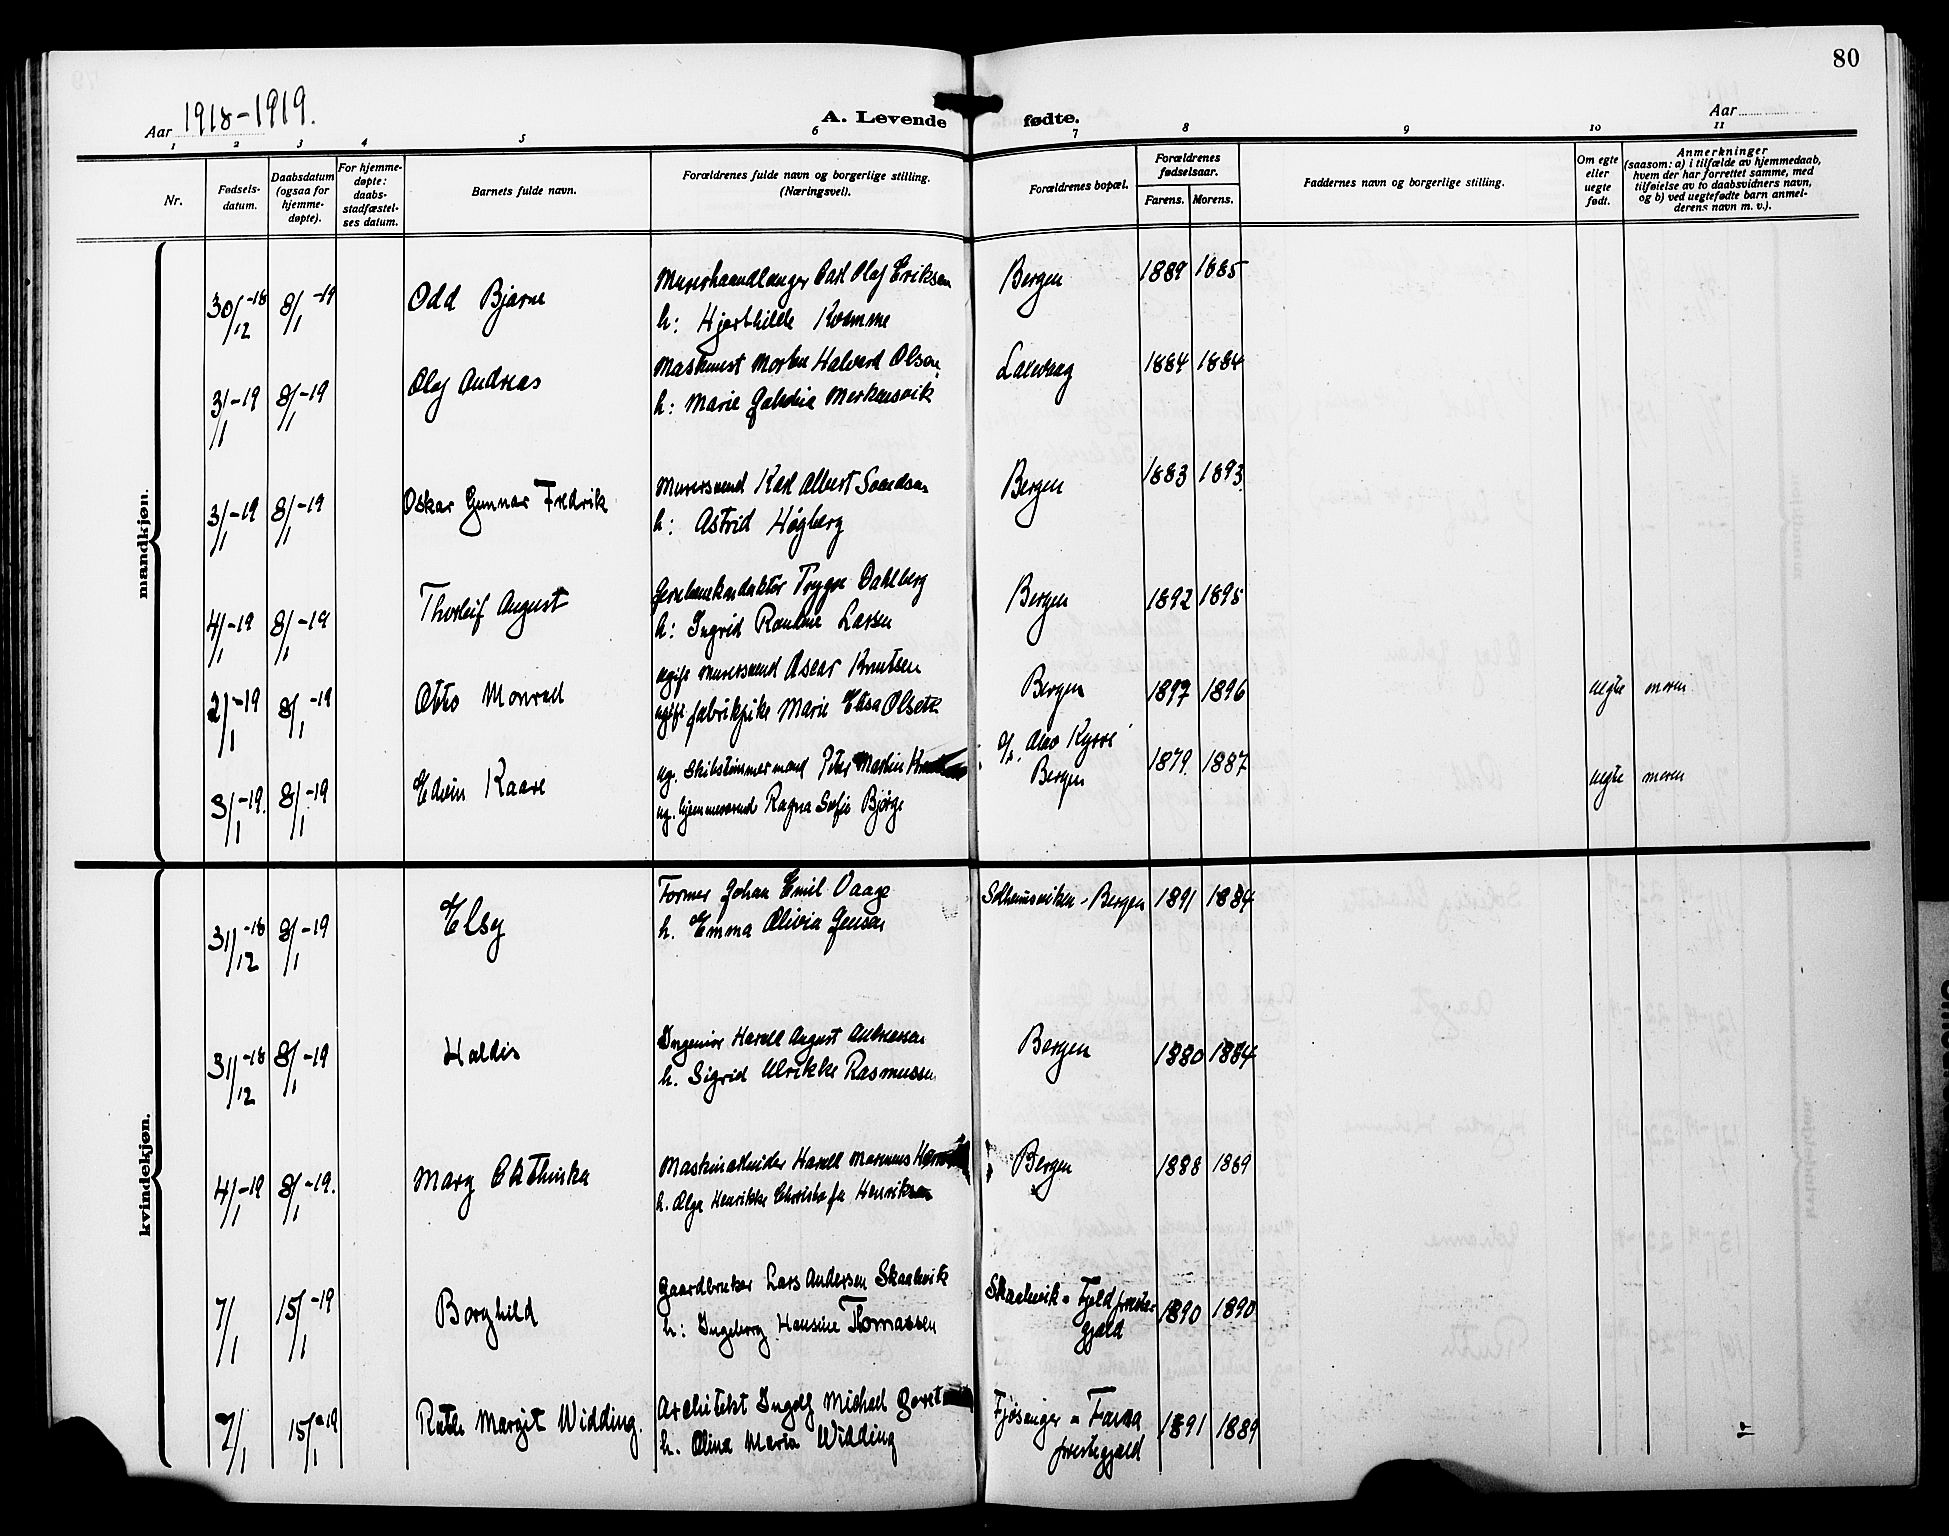 80
Aar 1918-1919.
A. Levende fødte.
Aar
1 2 3 4 5 6 7 8 9 10 11
Nr.
Fødsels-
datum.
Daabsdatum
(ogsaa for
hjemme-
døpte).
For hjemme-
døpte:
daabs-
stadfæstel-
ses datum.
Barnets fulde navn.
Forældrenes fulde navn og borgerlige stilling.
(Næringsvei).
Forældrenes bopæl.
Forældrenes
fødselsaar.
Farens. Morens.
Faddernes navn og borgerlige stilling.
Om egte
eller
uegte
født.
Anmerkninger
(saasom: a) i tilfælde av hjemmedaab,
hvem der har forrettet samme, med
tilføielse av to daabsvidners navn,
og b) ved uegtefødte barn anmel-
derens navn m. v.).
mandkjøn.
30/12 -18 8/1 -19 Odd Bjarne Murerhaandlanger Carl Olaf Eriksen Bergen 1889 1885
h: Hjørthilde Kvamme
3/1 -19 8/1 -19 Olaf Andreas Maskinist Morten Halvard Olsen Laxevaag 1884 1884
h: Marie
3/1 -19 8/1 -19 Oskar Gunnar Fredrik Murersvend Karl Albert Bergen 1883 1893
h: Astrid Høgberg
4/1 -19 8/1 -19 Thorleif August Trygve Dahlberg Bergen 1892 1895
h: Ingrid Larsen
2/1 -19 8/1 -19 Otto Monrad ugift murersvend Oscar Knutsen Bergen 1897 1896 uegte moren
ugift fabrikpike Marie Elisa
3/1 -19. 8/1 -19 Edvin Kaare ug. Skibstømmermand Peter Martin Olav Kyrre 1879. 1887 uegte moren
ug. hjemmeværende Ragna Sofie Bjørge Bergen
kvindekjøn.
31/12 -18 8/1 -19 Elsy Former Johan Emil Vaage Solheimsviken - Bergen 1891 1884
h. Emma Olivia Jensen
31/12 -18 8/1 -19 Haldis Ingeniør Harald August Andreassen Bergen 1880 1884
h. Sigrid Ulrikke Rasmussen
4/1 -19 8/1 -19. Mary Cathinka Maskinarbeider Harald Bergen 1888 1889
h. Olga Henrikke Henriksen
7/1 15/1 -19 Borghild Gaardbruker Lars Andersen Skaalevik Skaalevik - Fjeld preste- 1890 1890
h: Ingeborg Hansine Thomassen gjæld
7/1 15/1 -19 Ruth Margit Widding. Architekt Ingolf Michael Fjøsanger - Fana 1891 1889
h. Olina Maria Widding prestegjæld